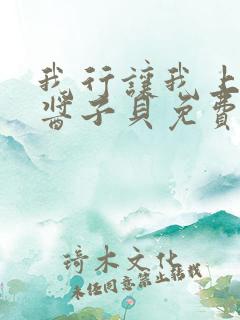 我行讓我上
醬子貝免費
琦木文化
未经同意禁止转载